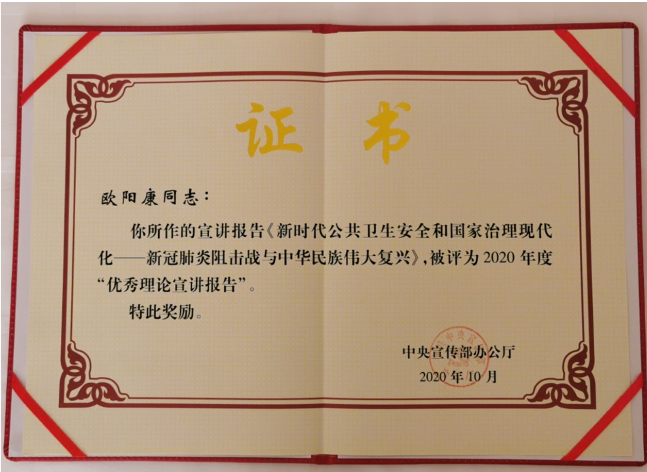 证书
欧阳康同志：
你所作的宣讲报告《新时代公共卫生安全和国家治理现代
化——新冠肺炎阻击战与中华民族伟大复兴》，被评为 2020 年度
“优秀理论宣讲报告”。
特此奖励。
中央宣传部办公厅
2020 年 10 月